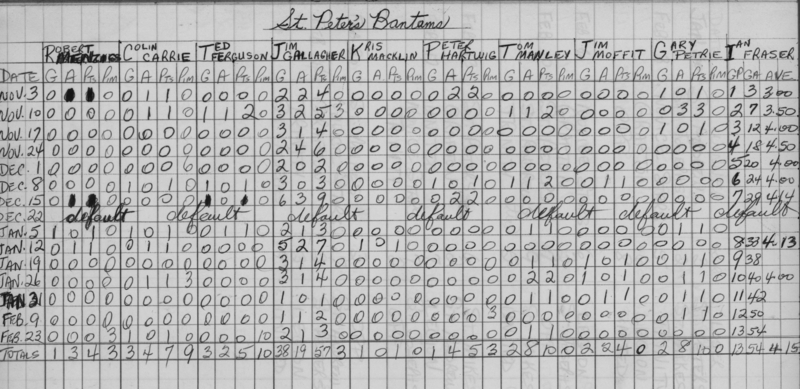 St. Peter's Bantams
ROBERT MENZIES COLIN CARRIE TED FERGUSON JIM GALLAGHER KRIS MACKLIN PETER HARTWIG TOM MANLEY JIM MOFFIT GARY PETRIE IAN FRASER
DATE G A Pts Pim G A Pts Pim G A Pts Pim G A Pts Pim G A Pts Pim G A Pts Pim G A Pts Pim G A Pts Pim G A Pts Pim GP GA AVE
NOV. 3 0 1 1 0 0 1 1 0 0 0 0 0 2 2 4 0 0 0 0 0 0 2 2 0 0 0 0 0 0 0 0 0 1 0 1 0 1 3 3.00
NOV. 10 0 0 0 0 0 1 1 0 1 1 2 0 3 2 5 3 0 0 0 0 0 0 0 0 1 1 2 0 0 0 0 0 0 3 3 0 2 7 3.50
NOV. 17 0 0 0 0 0 0 0 0 0 0 0 0 3 1 4 0 0 0 0 0 0 0 0 0 0 0 0 0 0 0 0 0 1 0 1 0 3 12 4.00
NOV. 24 0 0 0 0 0 0 0 0 0 0 0 0 2 4 6 0 0 0 0 0 0 0 0 0 0 0 0 0 0 0 0 0 0 0 0 0 4 18 4.50
DEC. 1 0 0 0 0 0 0 0 6 0 0 0 0 2 0 2 0 0 0 0 0 0 0 0 0 0 0 0 0 0 0 0 0 0 0 0 0 5 20 4.00
DEC. 8 0 0 0 0 1 0 1 0 1 0 1 0 3 0 3 0 0 0 0 0 1 0 1 0 1 1 2 0 0 1 1 0 0 0 0 0 6 24 4.00
DEC. 15 0 1 1 0 0 0 0 0 1 0 1 0 6 3 9 0 0 0 0 0 0 2 2 0 0 0 0 0 0 0 0 0 0 0 0 0 7 29 4.14
DEC. 22 default default default default default default default default
JAN. 5 1 0 1 0 1 0 1 0 0 1 1 0 2 1 3 0 0 0 0 0 0 0 0 0 0 1 1 0 1 0 1 0 0 1 1 0
JAN. 12 0 1 1 0 0 1 1 0 0 0 0 0 5 2 7 0 1 0 1 0 0 0 0 0 0 0 0 0 0 0 0 0 0 0 0 0 8 33 4.13
JAN. 19 0 0 0 0 0 0 0 0 0 0 0 0 3 1 4 0 0 0 0 0 0 0 0 0 0 1 1 0 1 0 1 0 0 1 1 0 9 38
JAN. 26 0 0 0 0 0 1 1 3 0 0 0 0 3 1 4 0 0 0 0 0 0 0 0 0 0 2 2 0 0 0 0 0 0 1 1 0 10 40 4.00
JAN 31 0 0 0 0 0 0 0 0 0 0 0 0 1 0 1 0 0 0 0 0 0 0 0 0 0 1 1 0 0 1 1 0 0 1 1 0 11 42
FEB. 9 0 0 0 0 0 0 0 0 0 0 0 0 1 1 2 0 0 0 0 0 0 0 0 3 0 0 0 0 0 0 0 0 0 1 1 0 12 50
FEB. 23 0 0 0 3 1 0 1 0 0 0 0 10 2 1 3 0 0 0 0 0 0 0 0 0 0 1 1 0 0 0 0 0 0 0 0 0 13 54
TOTALS 1 3 4 3 3 4 7 9 3 2 5 10 38 19 57 3 1 0 1 0 1 4 5 3 2 8 10 0 2 2 4 0 2 8 10 0 13 54 4.15